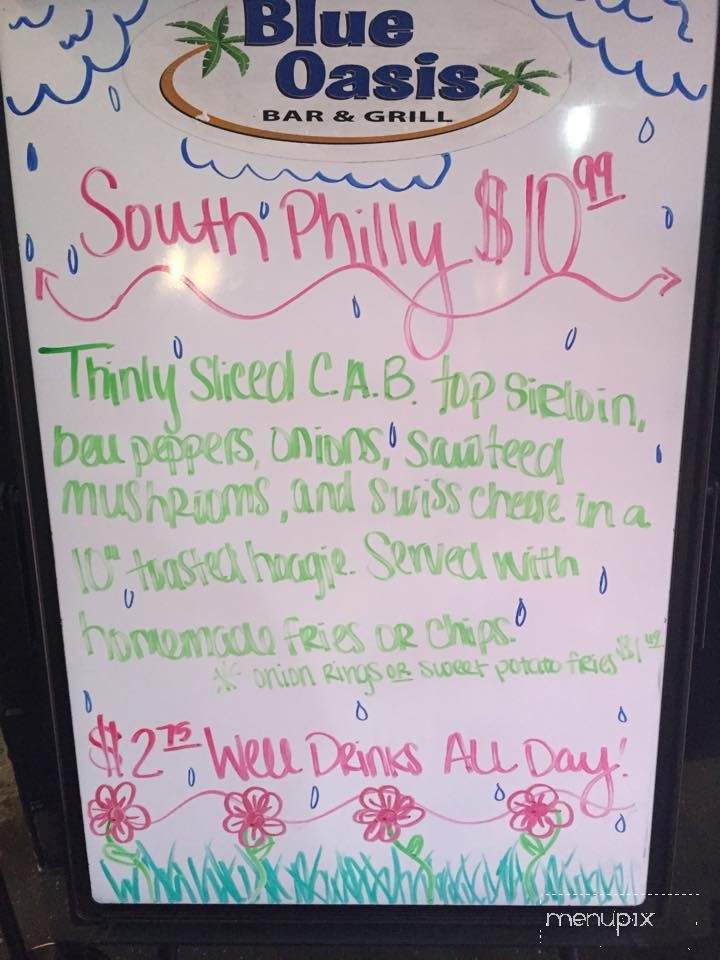 Blue
Oasis
BAR & GRILL
South Philly $10.99
Thinly Sliced C.A.B. top sirloin,
bell peppers, onions, sauteed
mushrooms, and swiss cheese in a
10" toasted hoagie. Served with
homemade fries or chips.
* onion rings or sweet potato fries
$2.75 Well Drinks All Day!
menupix